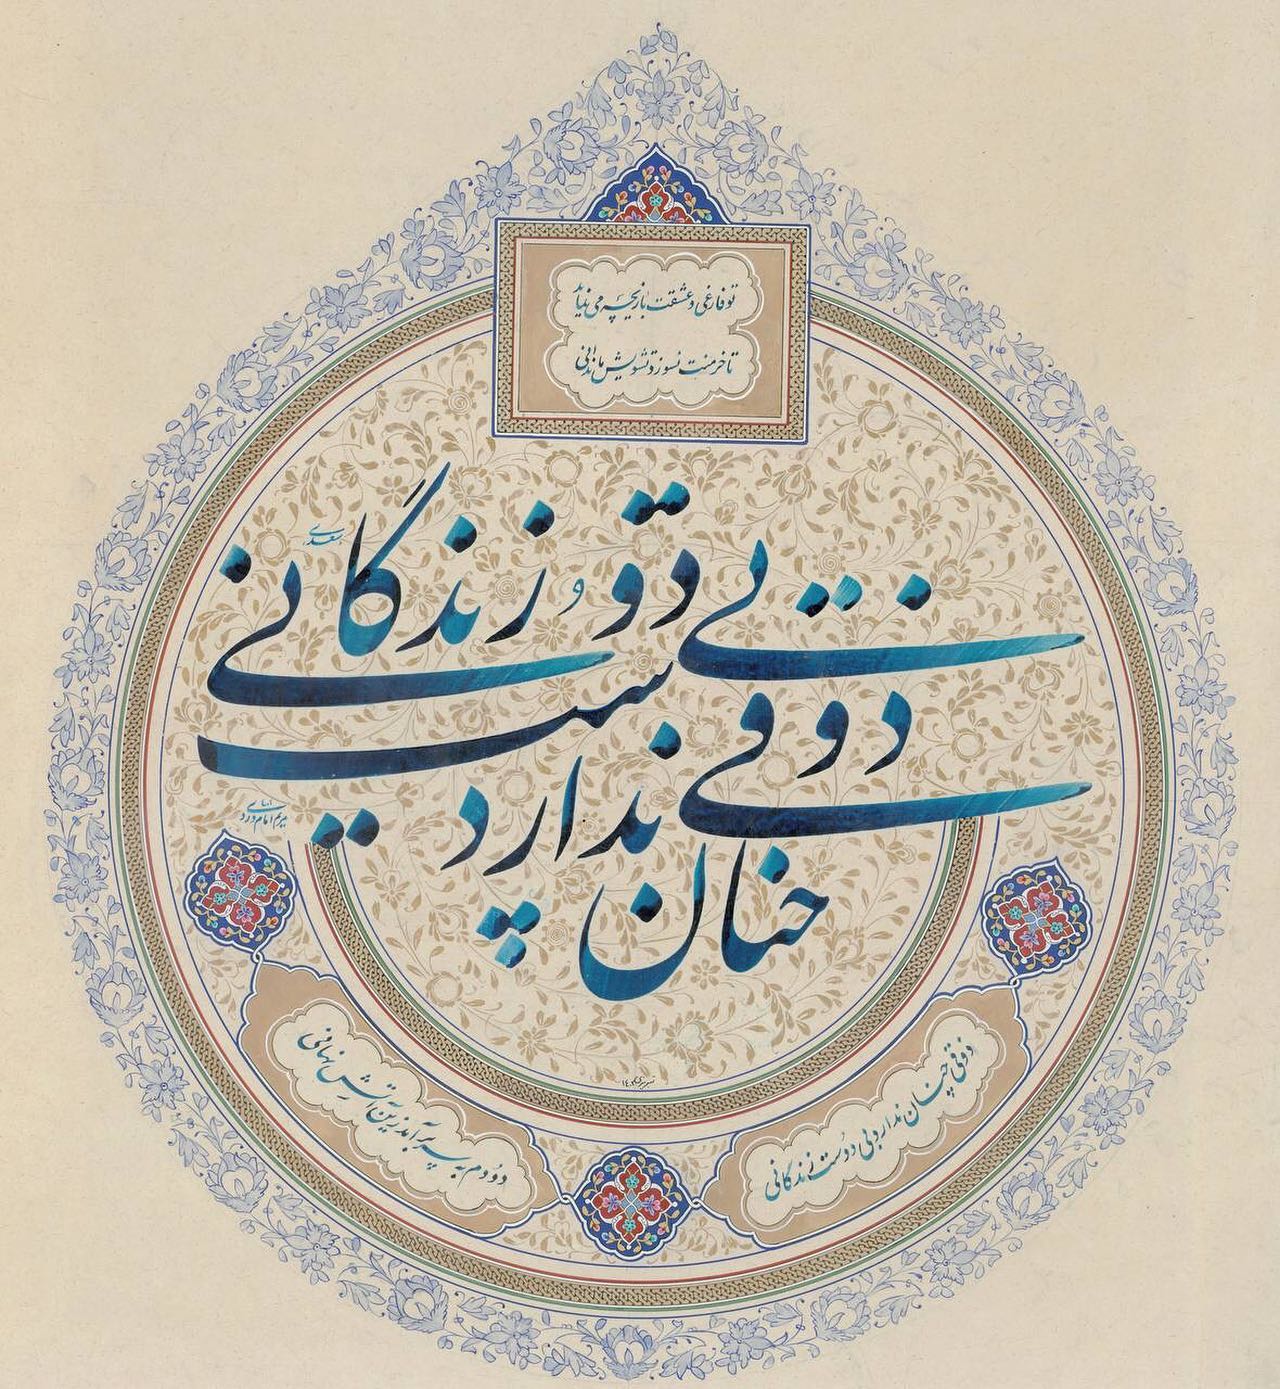 تو فارغی و عشقت بازیچه می نماید
تا خرمنت نسوزد تشویش ما ندانی
ذوقی چنان ندارد بی دوست زندگانی
سعدی
ذوقی چنان ندارد بی دوست زندگانی
دودم به سر برآمد زین آتش نهانی